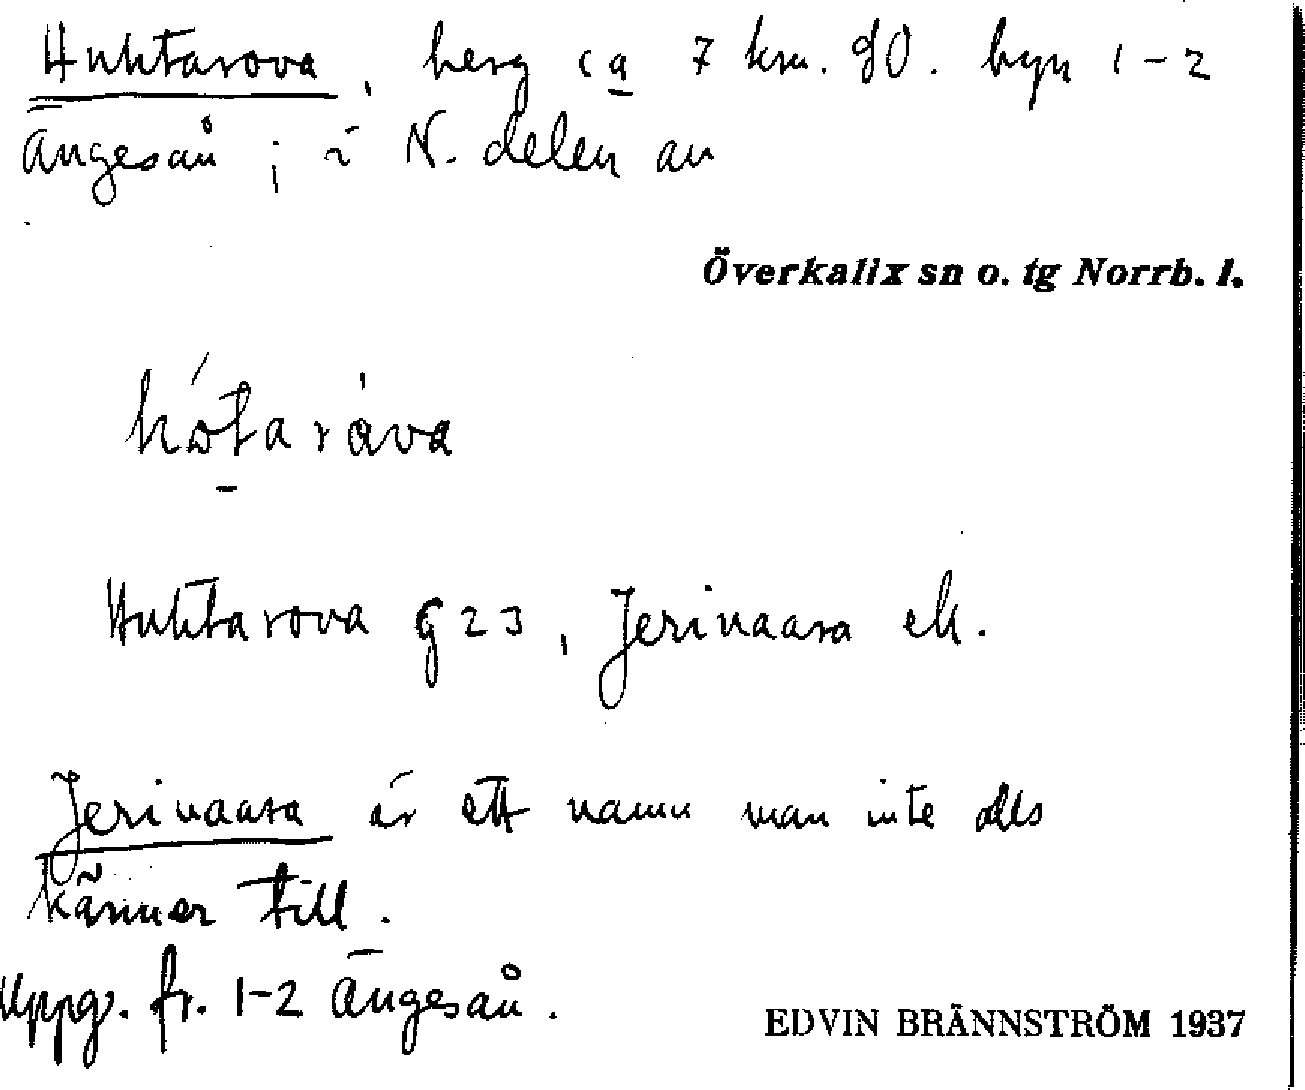 Huhtarova, berg ca 7 km. SO. byn 1-2
Ängesån ; i N. delen av
Överkalix sn o. tg Norrb. l.
hótaràva
Huhtarova G 23, Jerivaara ek.
Jerivaara är ett namn man inte alls
känner till.
Uppg. fr. 1-2 Ängesån.
EDVIN BRÄNNSTRÖM 1937